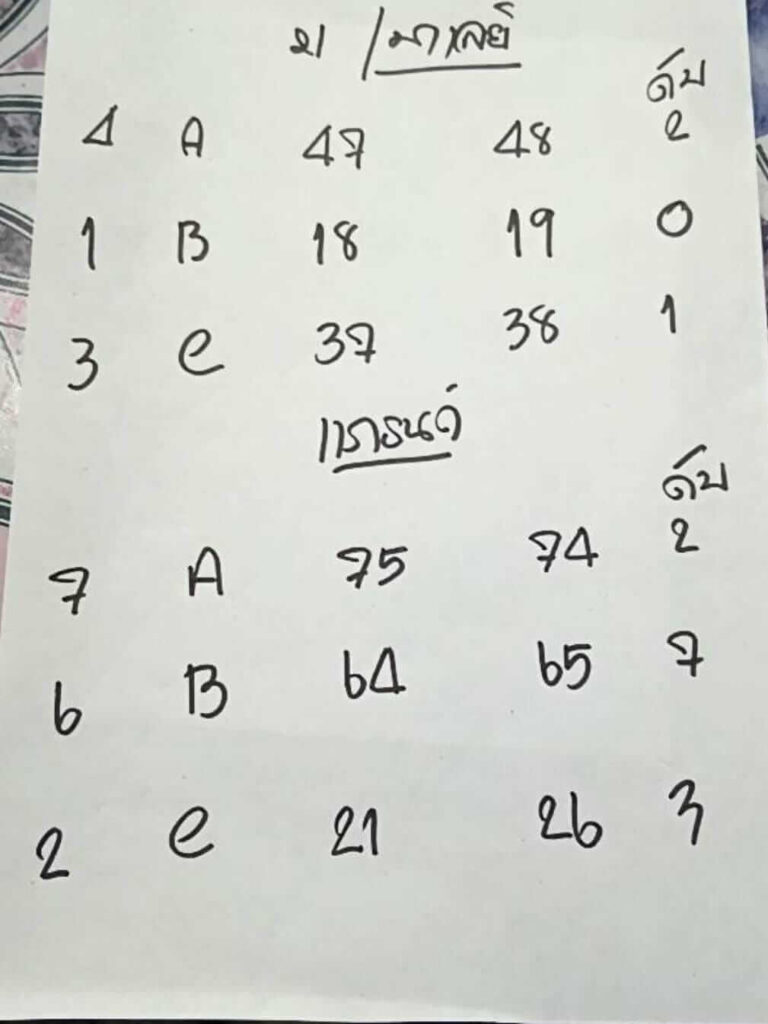 ม /มาเลย์
ดับ
4 A 47 48 2
1 B 18 19 0
3 C 37 38 1
แกรนด์
ดับ
7 A 75 74 2
6 B 64 65 7
2 C 21 26 3